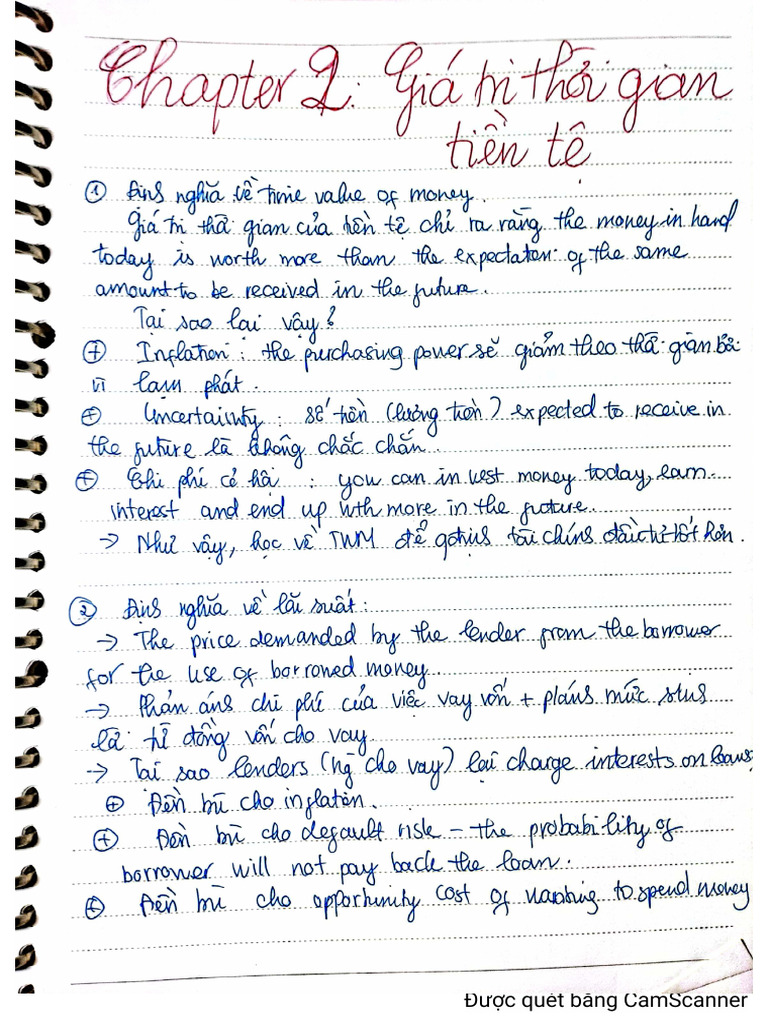 Chapter 2: Giá trị thời gian
tiền tệ
① Định nghĩa về time value of money.
Giá trị thời gian của tiền tệ chỉ ra rằng the money in hand
today is worth more than the expectation of the same
amount to be received in the future.
Tại sao lại vậy?
⊕ Inflation: the purchasing power sẽ giảm theo thời gian bởi
vì lạm phát.
⊕ Uncertainty: số tiền (lượng tiền) expected to receive in
the future là không chắc chắn.
⊕ Chi phí cơ hội: you can invest money today, earn
interest and end up with more in the future.
→ Như vậy, học về TVM để quyết định tài chính đầu tư tốt hơn.
② Định nghĩa về lãi suất:
→ The price demanded by the lender from the borrower
for the use of borrowed money
→ Phản ánh chi phí của việc vay vốn + phản ánh mức sinh
lời từ đồng vốn cho vay
→ Tại sao lenders (ng cho vay) lại charge interests on loans
⊕ Đền bù cho inflation.
⊕ Đền bù cho default risk – the probability of
borrower will not pay back the loan.
⊕ Đền bù cho opportunity cost of wanting to spend money
Được quét bằng CamScanner